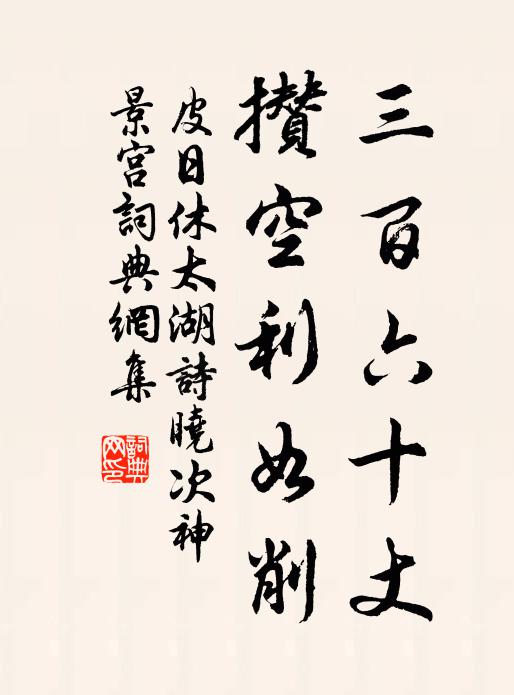 三百六十丈
攢空利如削
皮日休太湖詩曉次神
景宮詞典網集
詞典網印